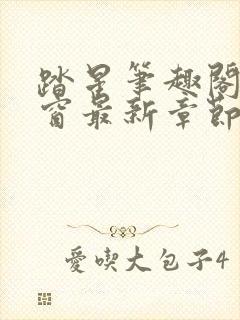 踏星筆趣閣
窗最新章節
愛喫大包子4